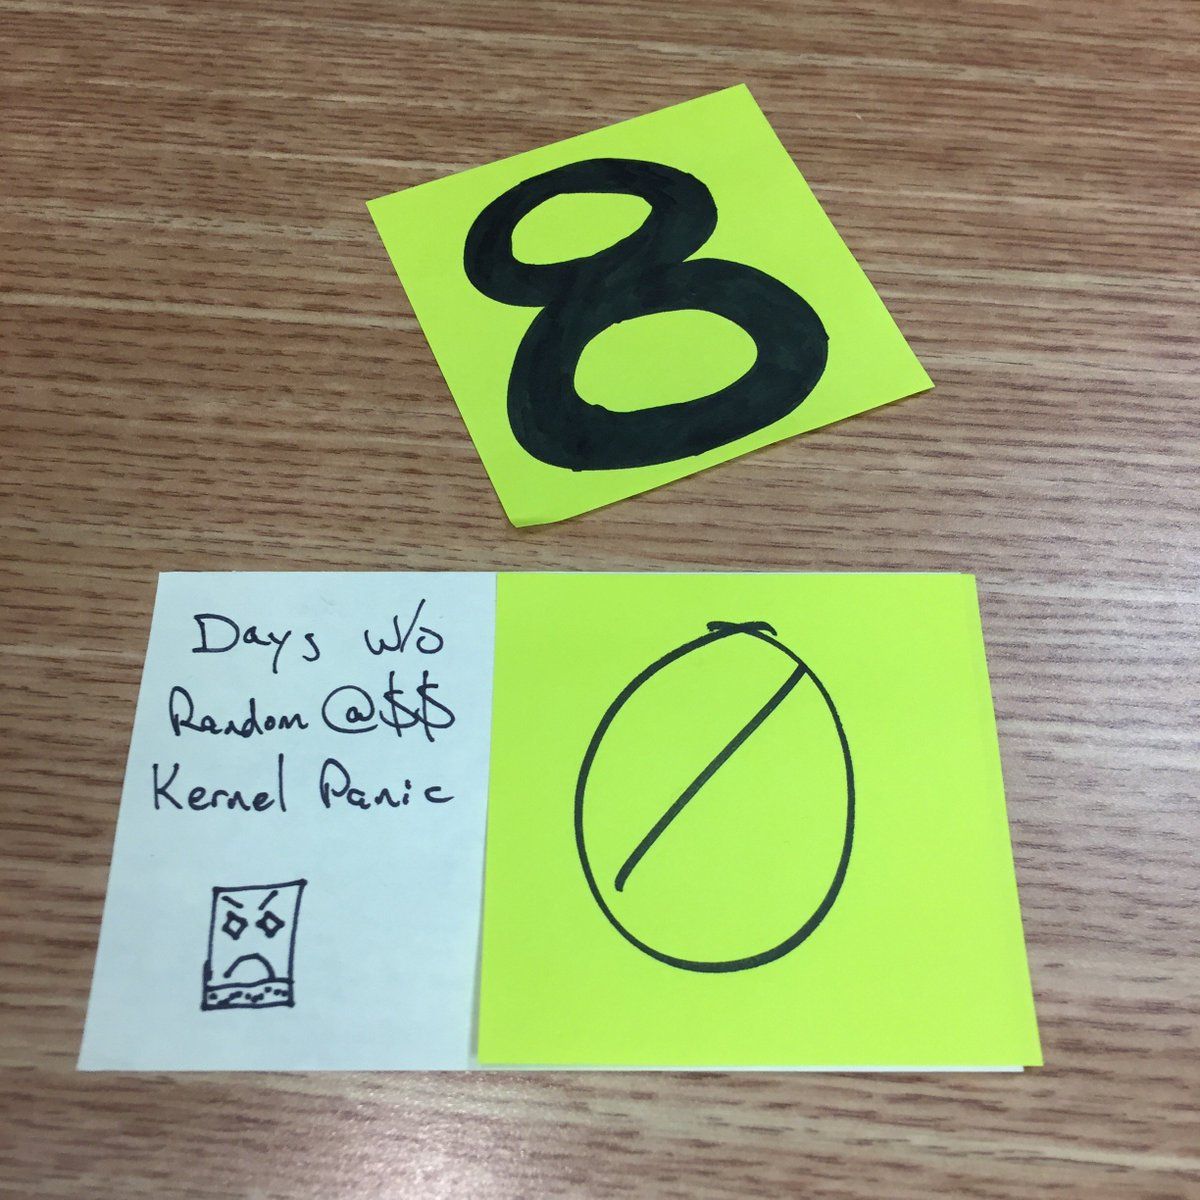 8
Days w/o
Random @$$
Kernel Panic
0